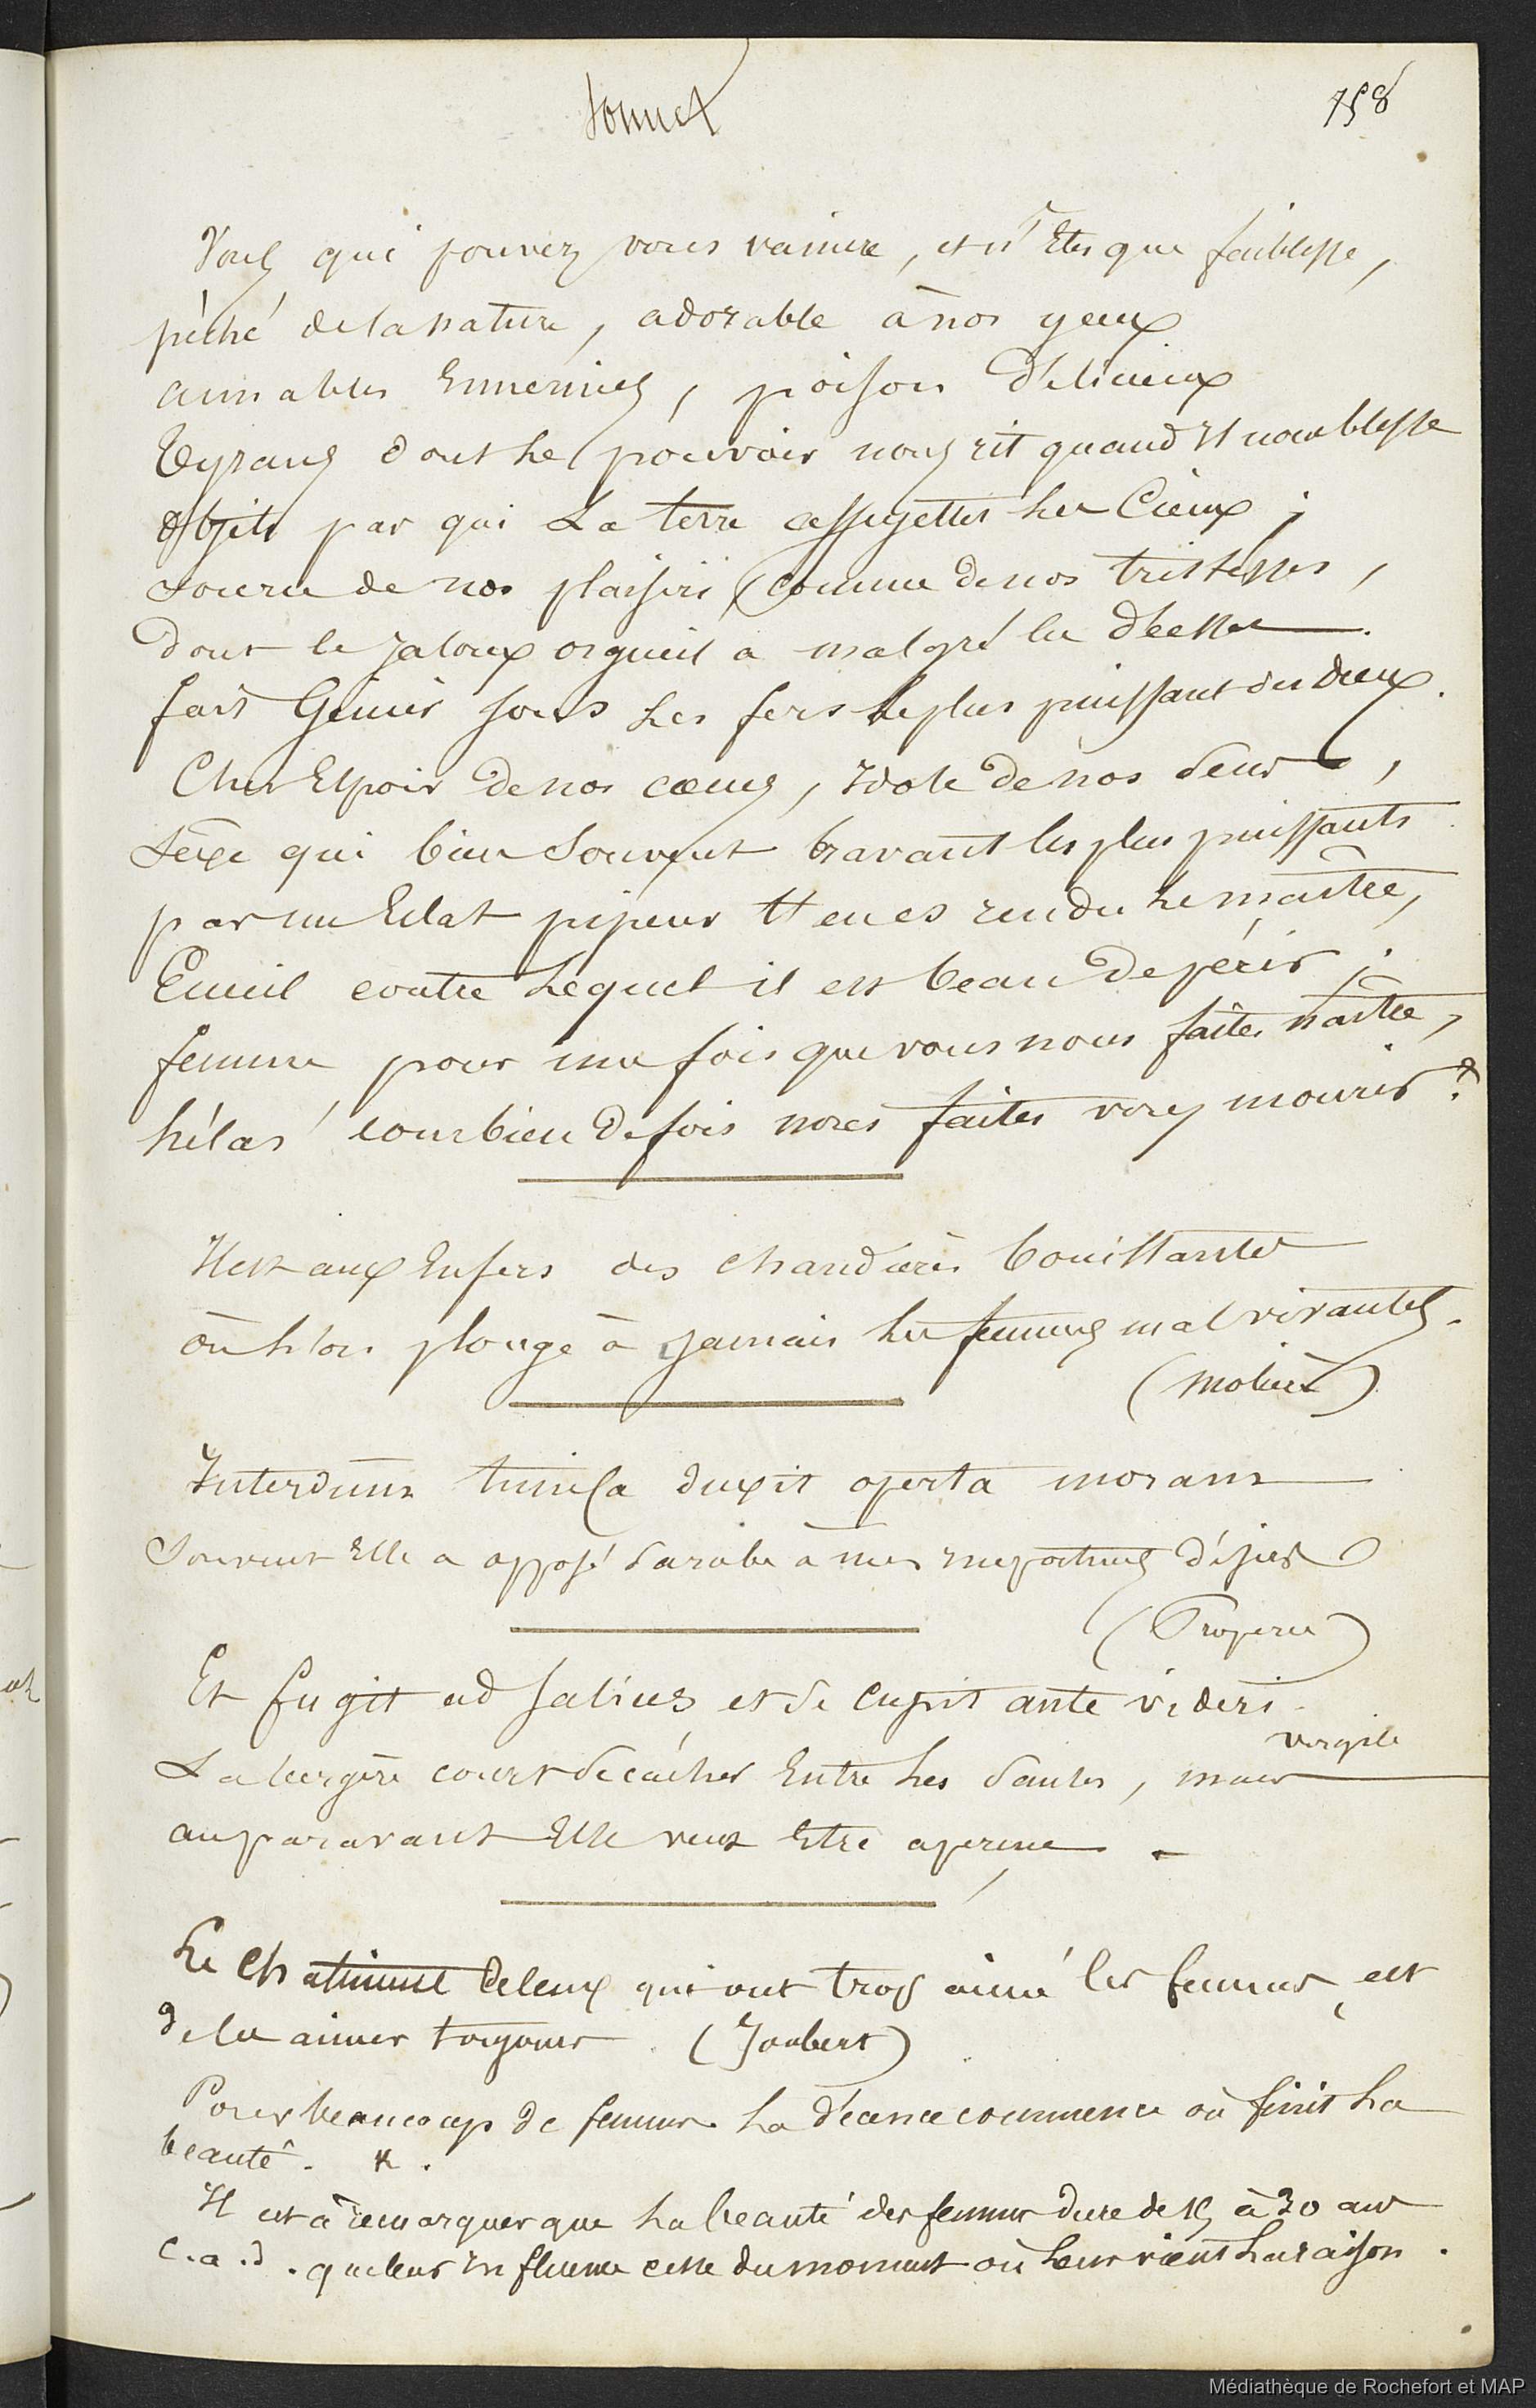 Sonnet
158
Vous qui pouvez vous vaincre, et n'êtes que faiblesse,
péché de la nature, adorable à nos yeux
aimables Ennemies, poison délicieux
Tyrans dont le pouvoir nous rit quand Il nous blesse
Objets par qui La terre assujettit les Cieux ;
source de nos plaisirs, comme de nos tristesses,
dont le jaloux orgueil a malgré la déesse
fait Gémir sous les fers le plus puissant des dieux.
Cher Espoir de nos cœurs, Idole de nos sens,
Sexe qui bien Souvent bravant les plus puissants
par un Eclat pipeur t'en es rendu le maître,
Ecueil contre Lequel il est beau de périr ;
femme pour une fois que vous nous faites naître,
hélas ! combien de fois nous faites vous mourir ?
Il est aux Enfers des chaudières bouillantes
où l'on plonge à Jamais les femmes mal vivantes.
(Molière)
Interdum tunica duxit operta moram
Souvent Elle a opposé sa robe à mes importuns désirs
(Properce)
Et fugit ad salices et se cupit ante videri.
Virgile
La bergère court se cacher Entre les saules, mais
auparavant Elle veut être aperçue.
Le chatiment de ceux qui ont trop aimé les femmes, est
de les aimer toujours. (Joubert)
Pour beaucoup de femmes la décence commence où finit la
beauté. *.
Il est à remarquer que la beauté des femmes dure de 15 à 30 ans
c.a.d. que leur Influence cesse du moment où leur vient la raison.
Médiathèque de Rochefort et MAP